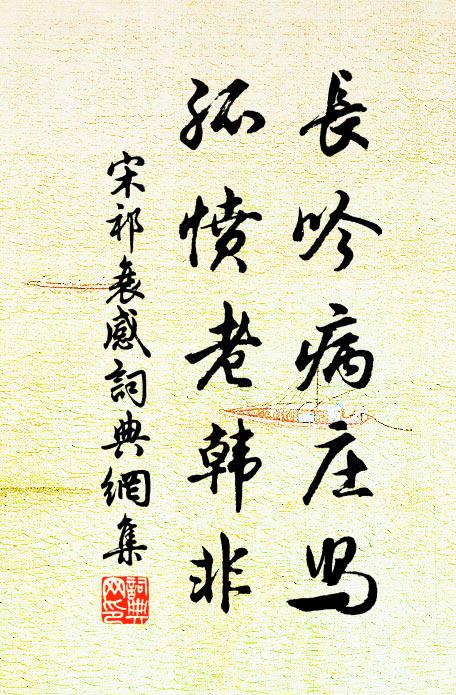 長吟病庄舄
孤憤老韓非
宋祁衰感詞典網集
詞典网印